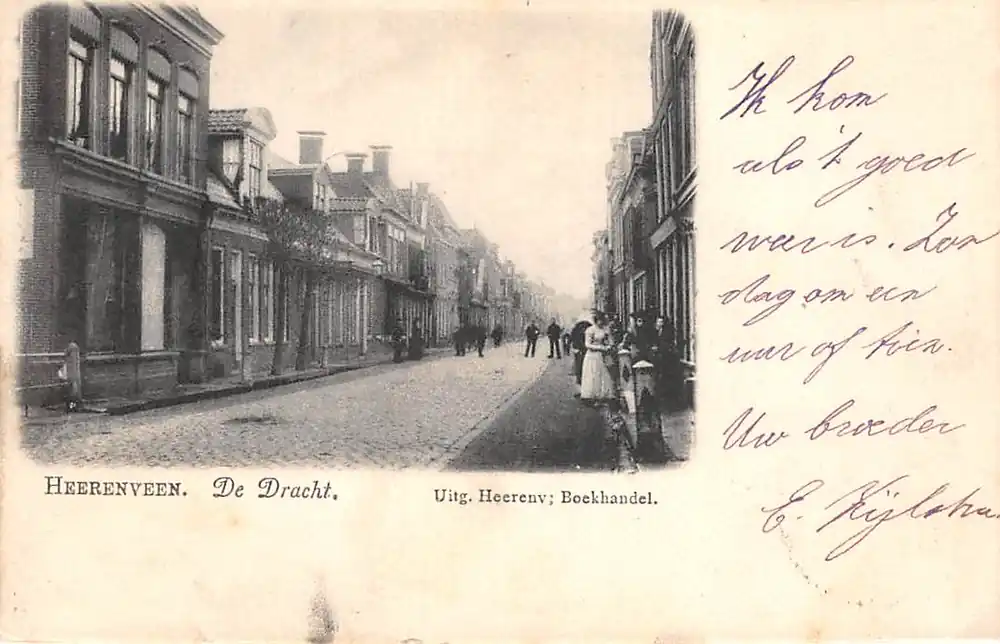 Ik kom
als 't goed
weer is. Zon
dag om een
uur of tien.
Uw broeder
E.
HEERENVEEN. De Dracht.
Uitg. Heerenv; Boekhandel.